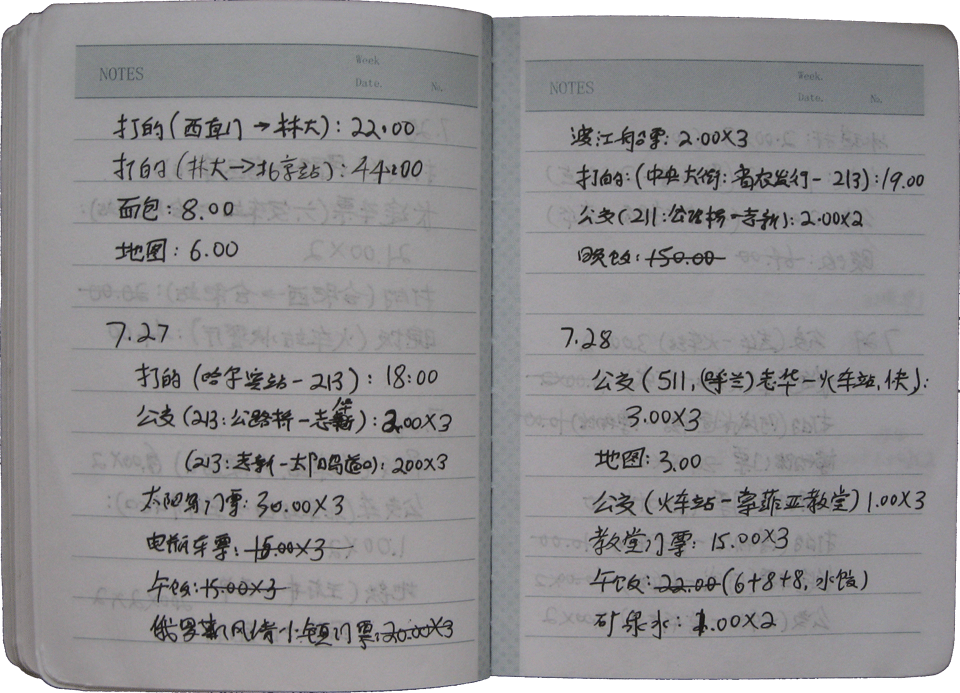 NOTES
Week
Date.
No.
打的(西直门→林大):22.00
打的(林大→北京站):44.00
面包:8.00
地图:6.00
7.27
打的(哈尔滨站-213):18:00
公交(213:公路桥-志华):2.00X3
(213:志新-太阳岛道口):200X3
太阳岛门票:30.00X3
电瓶车票:15.00X3
午饭:15.00X3
俄罗斯风情小镇门票:20.00X3
NOTES
Week.
Date.
No.
渡江船票:2.00X3
打的:(中央大街:省农发行-213):19.00
公交(211:公路桥-志新):2.00X2
晚饭:150.00
7.28
公交(511,(呼兰)志华-火车站,快):
3.00X3
地图:3.00
公交(火车站-索菲亚教堂)1.00X3
教堂门票:15.00X3
午饭:22.00(6+8+8,水饺)
矿泉水:1.00X2